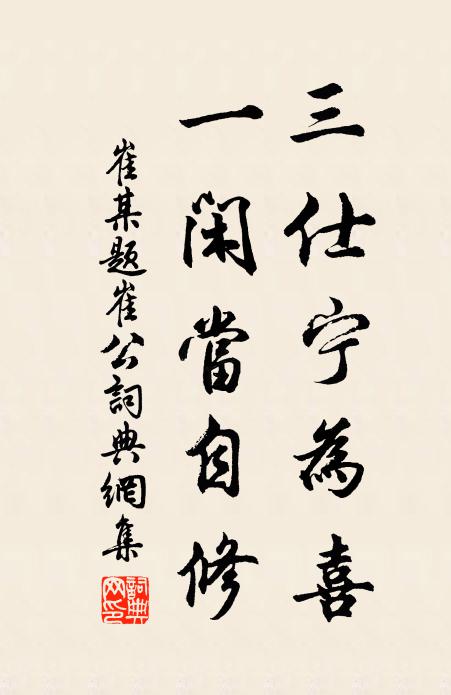 三仕宁為喜
一闲當自修
崔某題崔公詞典網集
詞典网印